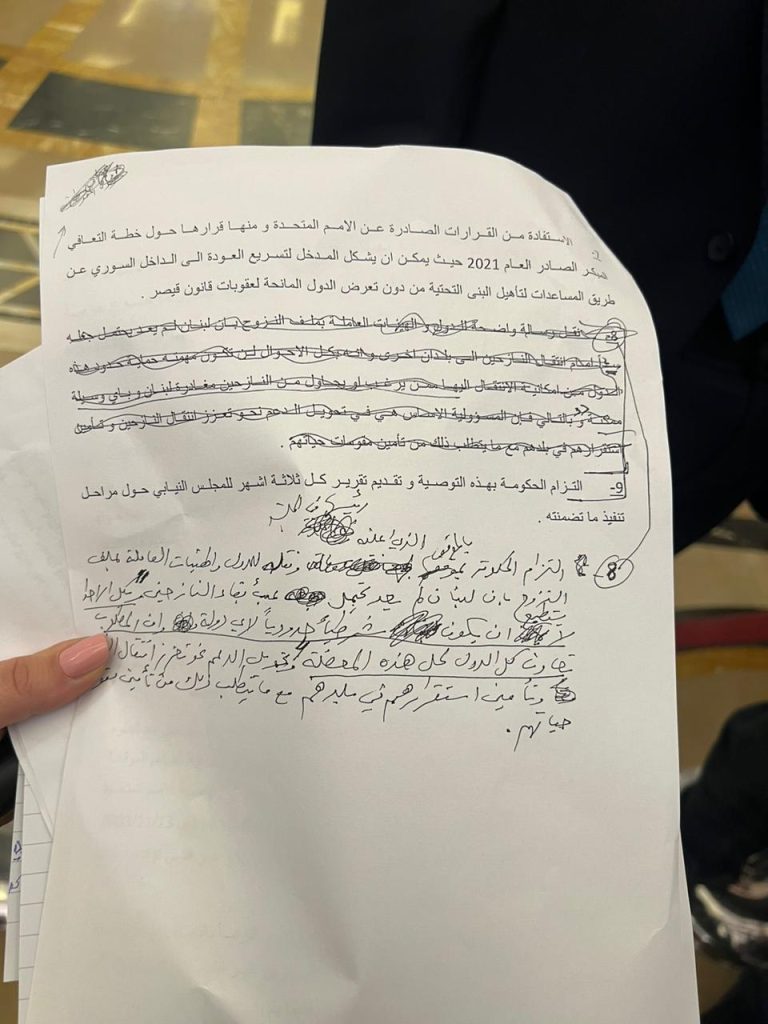 الاستفادة من القرارات الصادرة عن الامم المتحدة و منها قرارها حول خطة التعافي
المبكر الصادر العام 2021 حيث يمكن ان يشكل المدخل لتسريع العودة الى الداخل السوري عن
طريق المساعدات لتأهيل البنى التحتية من دون تعرض الدول المانحة لعقوبات قانون قيصر .
8- نقل رسالة واضحة للدول و الهيئات العاملة بملف النزوح بان لبنان لم يعد يحتمل جعله
سداً امام انتقال النازحين الى بلدان اخرى و انه بكل الاحوال لن تكون مهمته حماية حدود هذه
الدول من امكانية الانتقال اليها ممن يرغب او يحاول من النازحين مغادرة لبنان و باي وسيلة
ممكنة و بالتالي فإن المسؤولية الاساس هي في تحويل الدعم نحو تعزيز انتقال النازحين و تأمين
استقرارهم في بلدهم مع ما يتطلب ذلك من تأمين مقومات حياتهم .
9- التزام الحكومة بهذه التوصية و تقديم تقرير كل ثلاثة اشهر للمجلس النيابي حول مراحل
تنفيذ ما تضمنته .
رئيسها في كلمته
بالموقف الذي اعلنه
8 التزام الحكومة ونقله للدول والهيئات العاملة بملف
النزوح بان لبنان لم يعد يحتمل عبء بقاء النازحين وبكل الاحوال
لا يستطيع ان يكون شرطياً حدودياً لاي دولة وان المطلوب
تعاون كل الدول لحل هذه المعضلة وتحويل الدعم نحو تعزيز انتقال
وتأمين استقرارهم في بلدهم مع ما يتطلب ذلك من تأمين
حياتهم .